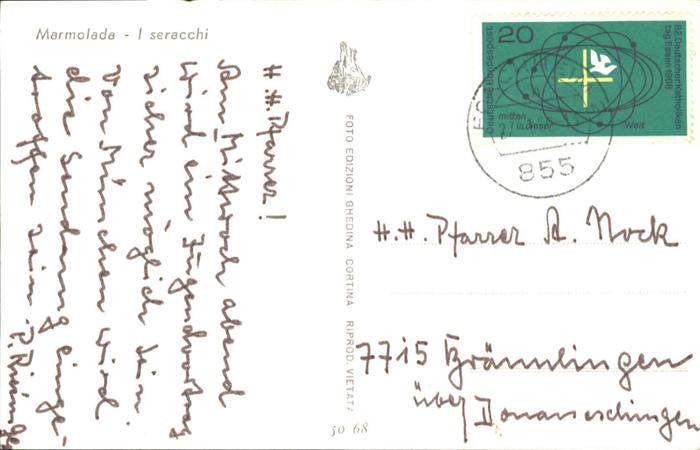 Marmolada - I seracchi
H. H. Pfarrer!
Am Mittwoch abend
wird ein Jugendvortrag
sicher möglich sein.
Von München wird
die Sendung einge-
troffen sein.
FOTO EDIZIONI GHEDINA CORTINA RIPROD. VIETATA
50 68
Deutsche Bundespost
20
82. Deutscher Katholiken
tag Essen 1968
mitten
in dieser Welt
855
H. H. Pfarrer A. Nock
7715 Bräunlingen
über Donaueschingen